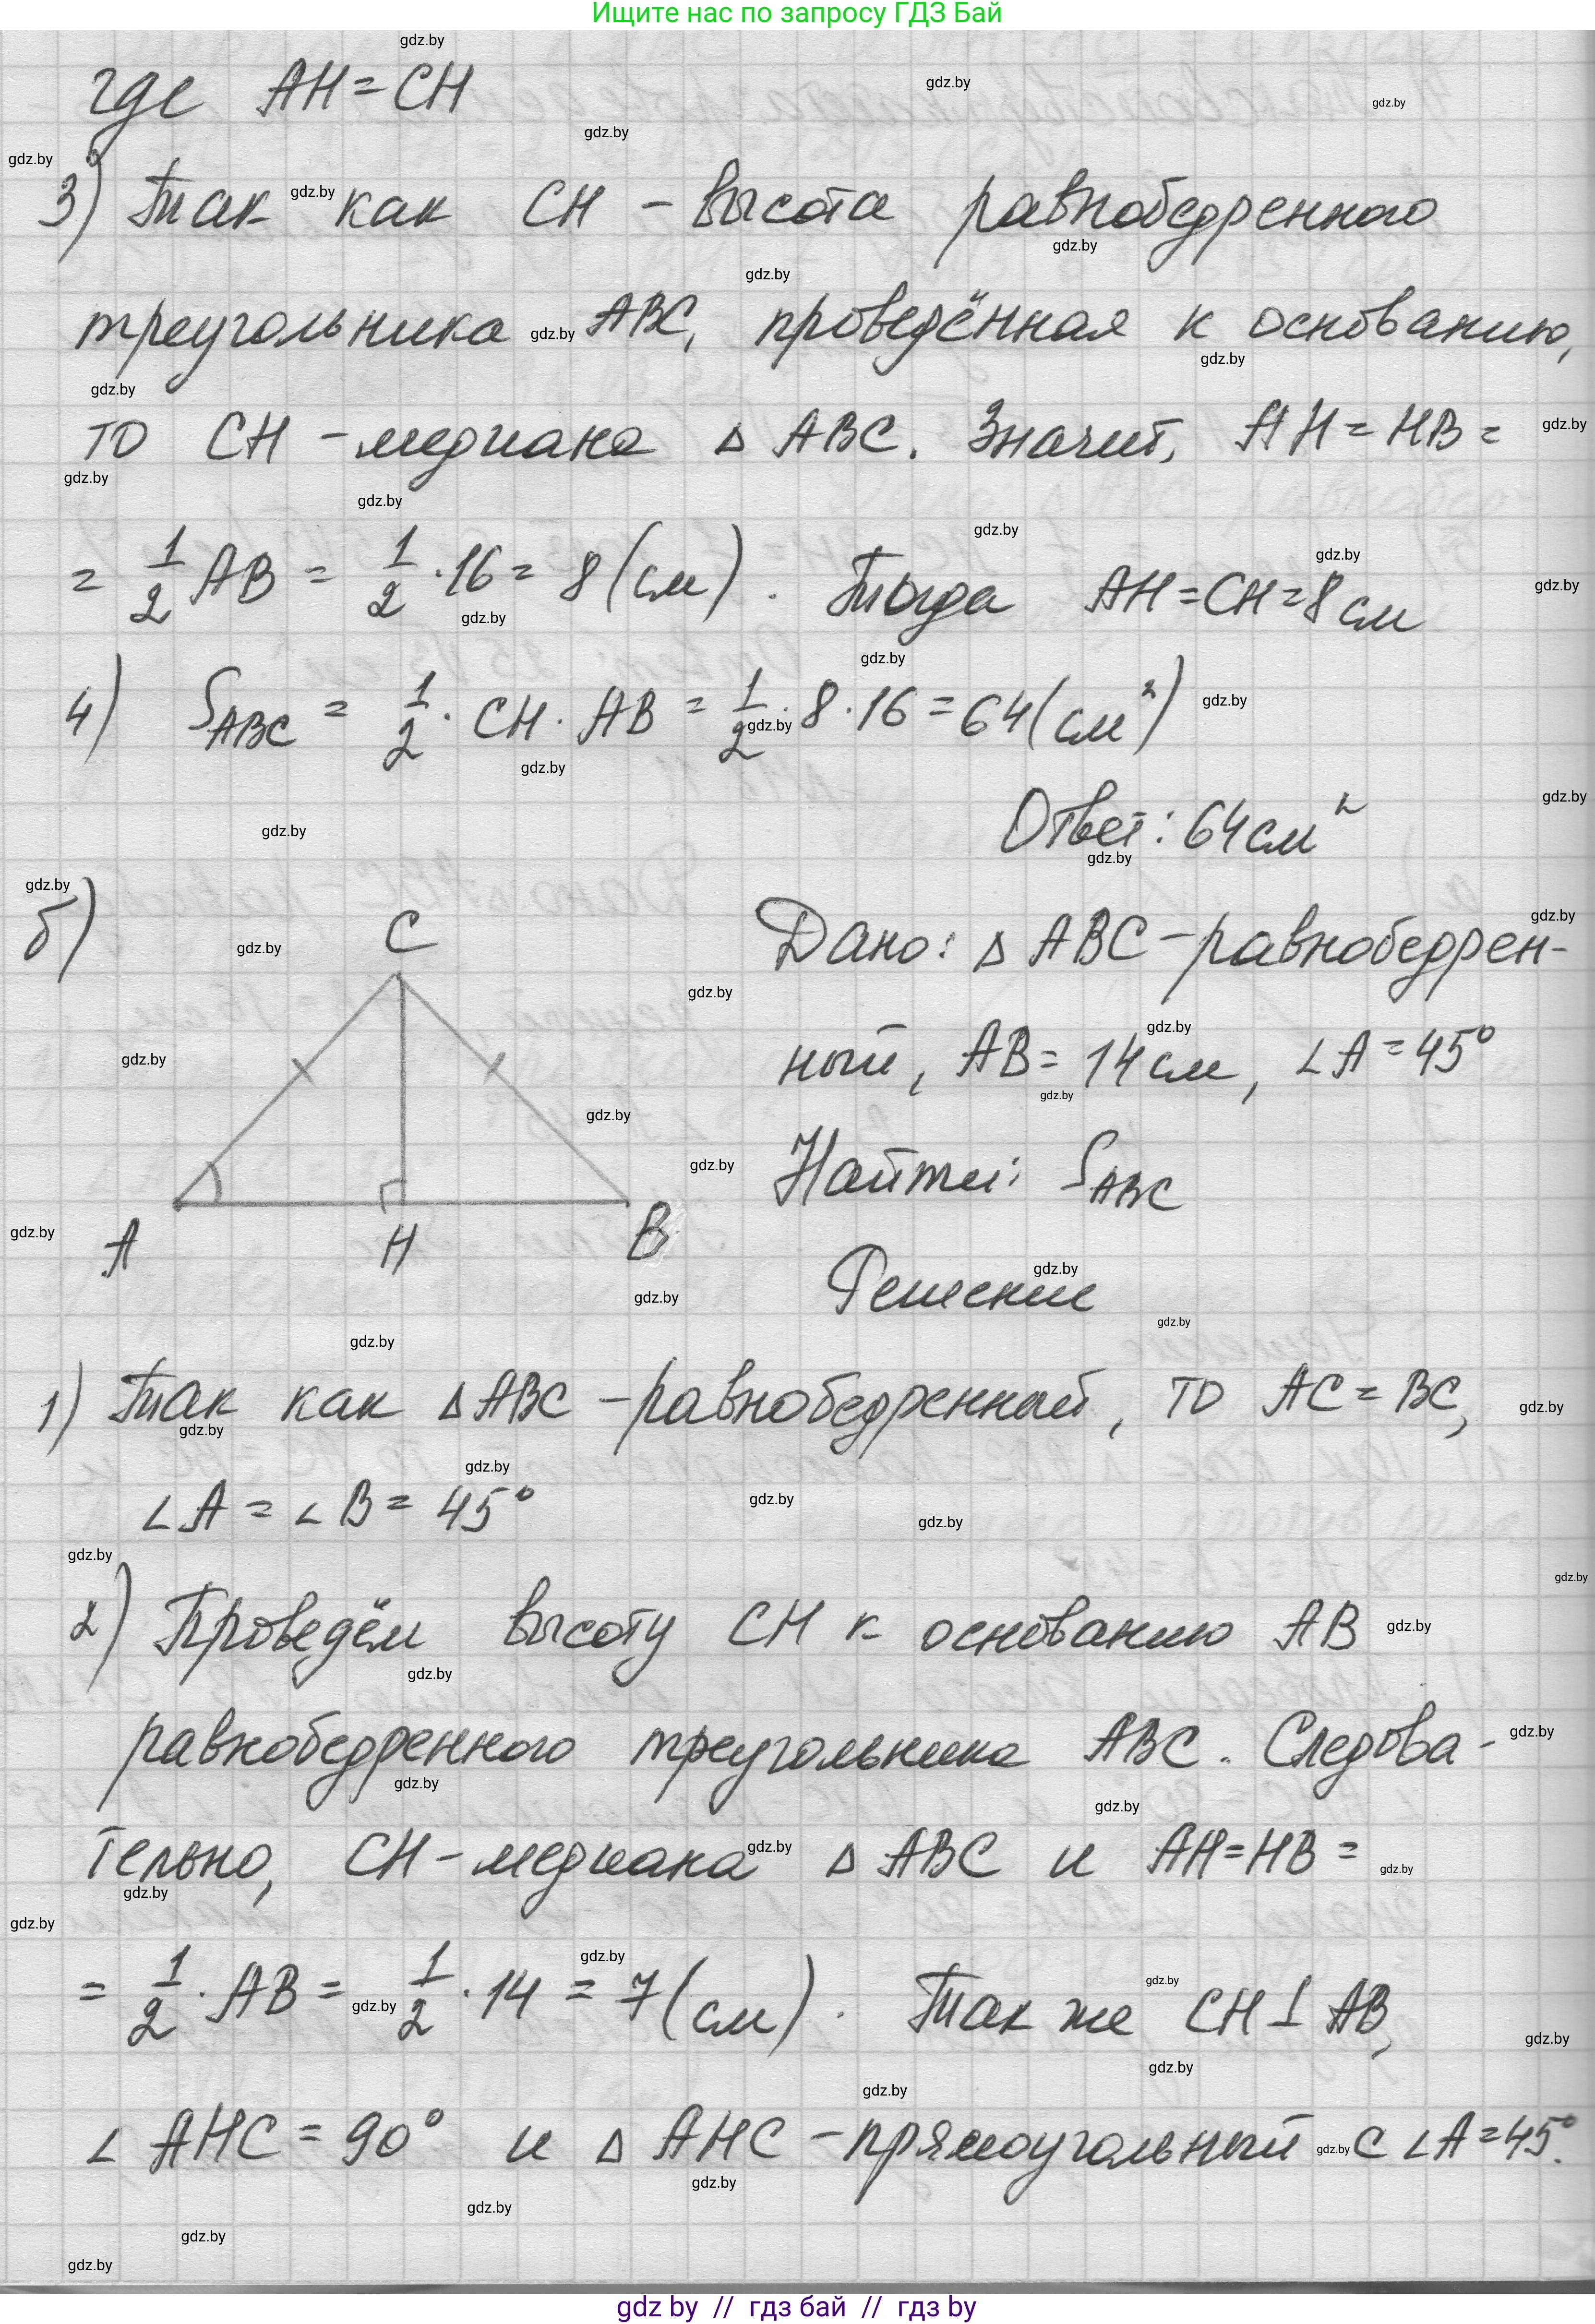 Ищите нас по запросу ГДЗ Бай
где AH = CH
3) Так как CH - высота равнобедренного
треугольника ABC, проведённая к основанию,
то CH - медиана Δ ABC. Значит, AH = HB =
= 1/2 AB = 1/2 · 16 = 8 (см). Тогда AH = CH = 8 см
4) S_ABC = 1/2 · CH · AB = 1/2 · 8 · 16 = 64 (см²)
Ответ: 64 см²
б)
C
A
H
B
Дано: Δ ABC - равнобедрен-
ный, AB = 14 см, ∠A = 45°
Найти: S_ABC
Решение
1) Так как Δ ABC - равнобедренный, то AC = BC,
∠A = ∠B = 45°
2) Проведём высоту CH к основанию AB
равнобедренного треугольника ABC. Следова-
тельно, CH - медиана Δ ABC и AH = HB =
= 1/2 · AB = 1/2 · 14 = 7 (см). Так же CH ⊥ AB,
∠ AHC = 90° и Δ AHC - прямоугольный с ∠A = 45°.
gdz by // гдз бай // гдз by